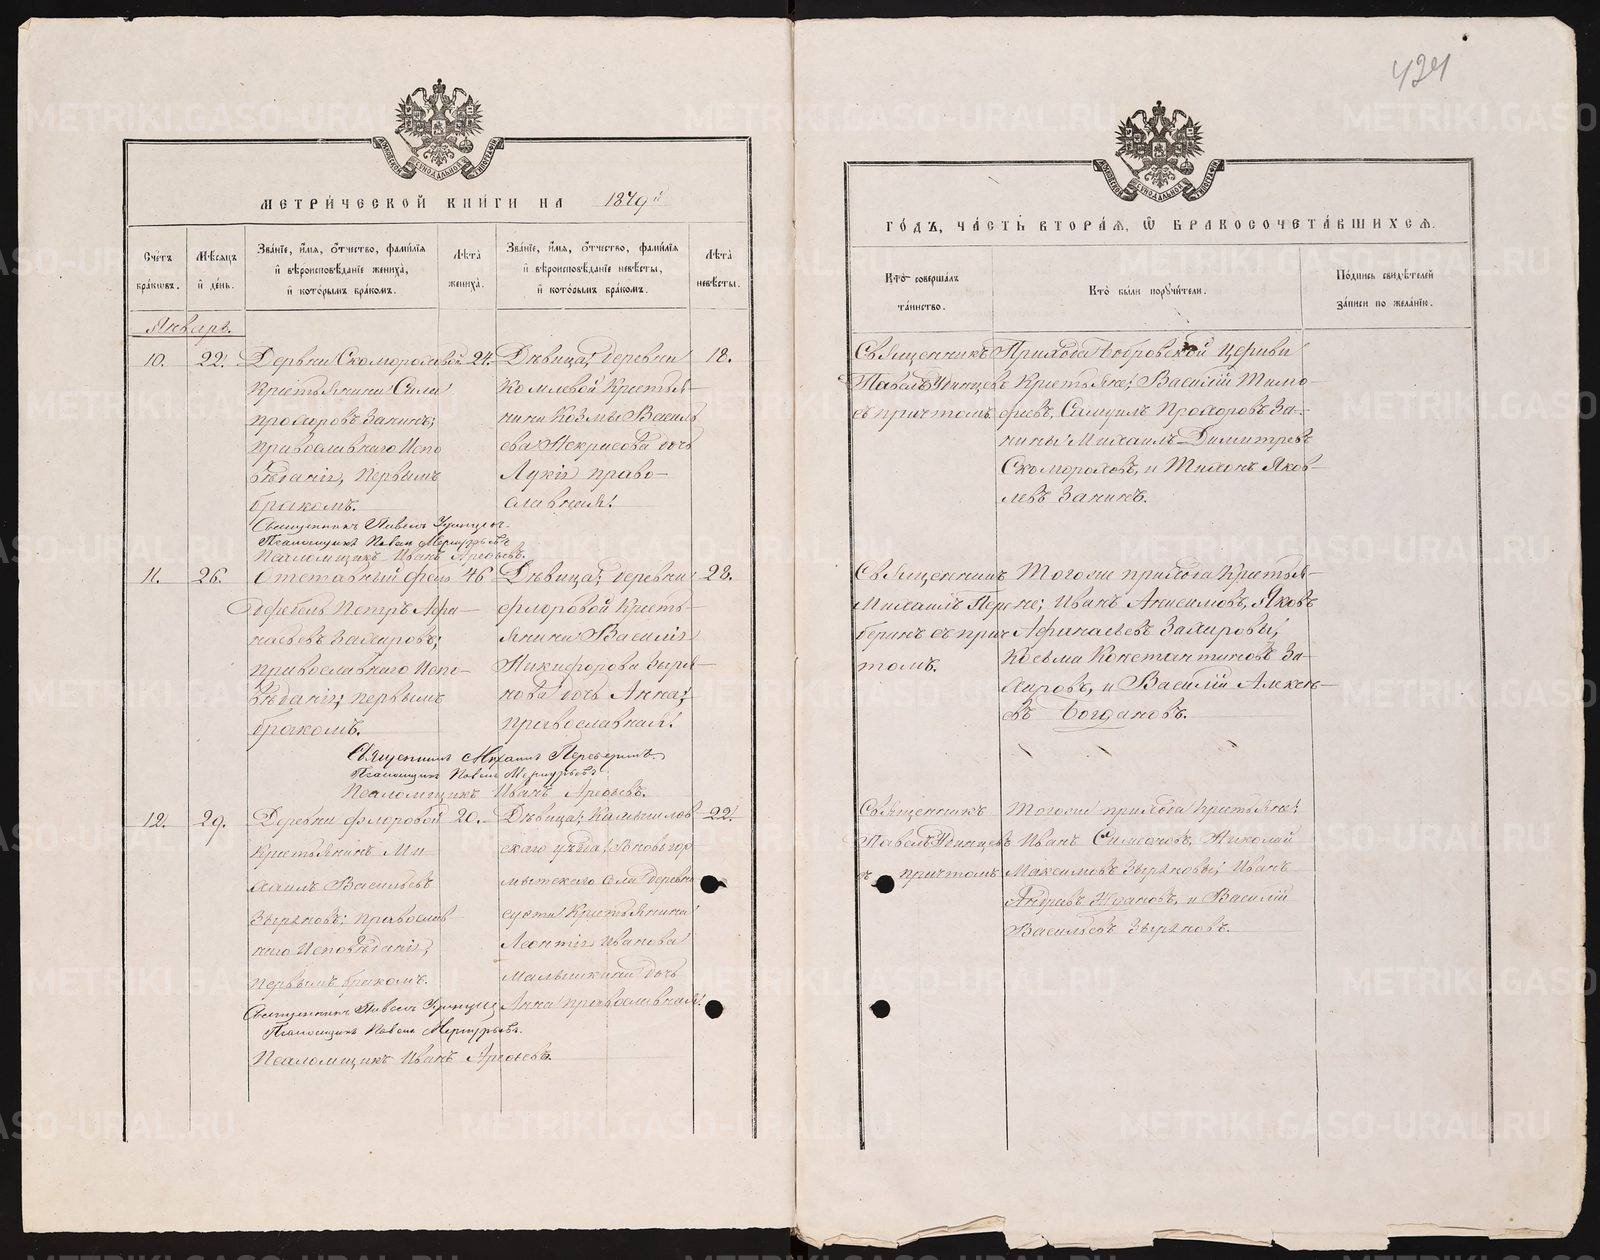 424
МЕТРИ́ЧЕСКОЙ КНИ́ГИ НА 1879й
ГО́ДЪ, ЧА́СТЬ ВТОРА́Я, Ѿ БРАКОСОЧЕТА́ВШИХСЯ.
Сче́тъ бра́ковъ.
Мѣ́сяцъ и҆ день.
Зва́нїе, и҆́мя, о҆́тчество, фами́лїя
и҆ вѣроисповѣ́данїе жениха̀,
и҆ кото́рымъ бра́комъ.
Лѣ́та жениха̀.
Зва́нїе, и҆́мя, о҆́тчество, фами́лїя
и҆ вѣроисповѣ́данїе невѣ́сты,
и҆ кото́рымъ бра́комъ.
Лѣ́та невѣ́сты.
Кто̀ соверша́лъ
та́инство.
Кто̀ бы́ли поручи́тели.
По́дпись свидѣ́телей
за́писи по жела́нїю.
Январь.
10. 22. Деревни Скомороховой 24. Дѣвица; деревни 18.
Крестьянинъ Сила
Прохоровъ Занинъ;
православнаго Испо
вѣданія, Первымъ
бракомъ.
Крестья
нина Козмы Василь
ева Некрасова дочь
Лукія право-
славная.
Священникъ
Павелъ Удинцевъ
съ причтомъ.
Прихода Бобровской Церкви
Крестьяне: Василій Тимо
феевъ, Самуилъ Прохоровъ За-
нины; Михаилъ Димитріевъ
Скомороховъ, и Тихонъ Яков-
левъ Занинъ.
Священникъ Павелъ Удинцевъ.
Псаломщикъ Павелъ Меркурьевъ
Псаломщикъ Иванъ Арефьевъ.
11. 26. Отставный фель 46 Дѣвица; деревни 28.
дфебель Петръ Афа-
насьевъ Захаровъ;
православнаго Испо-
вѣданія; первымъ
бракомъ.
Флоровой Кресть-
янина Василія
Никифорова Зыря-
нова дочь Анна;
Православная.
Священникъ
Михаилъ Пере
беринъ съ прич
томъ.
Тогоже прихода Крестья-
не; Иванъ Анисимовъ, Яковъ
Афанасьевъ Захаровы;
Косьма Константиновъ За-
харовъ, и Василій Алексѣ-
евъ Богдановъ.
Священникъ Михаилъ Переберинъ.
Псаломщикъ Павелъ Меркурьевъ.
Псаломщикъ Иванъ Арефьевъ.
12. 29. Деревни Флоровой 20. Дѣвица; Камышлов 22.
Крестьянинъ Ми
хаилъ Васильевъ
Зыряновъ; православ
наго Исповѣданія,
первымъ бракомъ.
скаго уѣзда;
села деревни
Крестьянина
Леонтія Иванова
Малышкина дочь
Анна православная.
Священникъ
Павелъ Удинцевъ
съ причтомъ
Тогоже прихода крестьяне:
Иванъ Симеоновъ, Николай
Максимовъ Зыряновы; Иванъ
Андреевъ Ждановъ, и Василій
Васильевъ Зыряновъ.
Священникъ Павелъ Удинцевъ
Псаломщикъ Павелъ Меркурьевъ.
Псаломщикъ Иванъ Арефьевъ.
METRIKI.GASO-URAL.RU